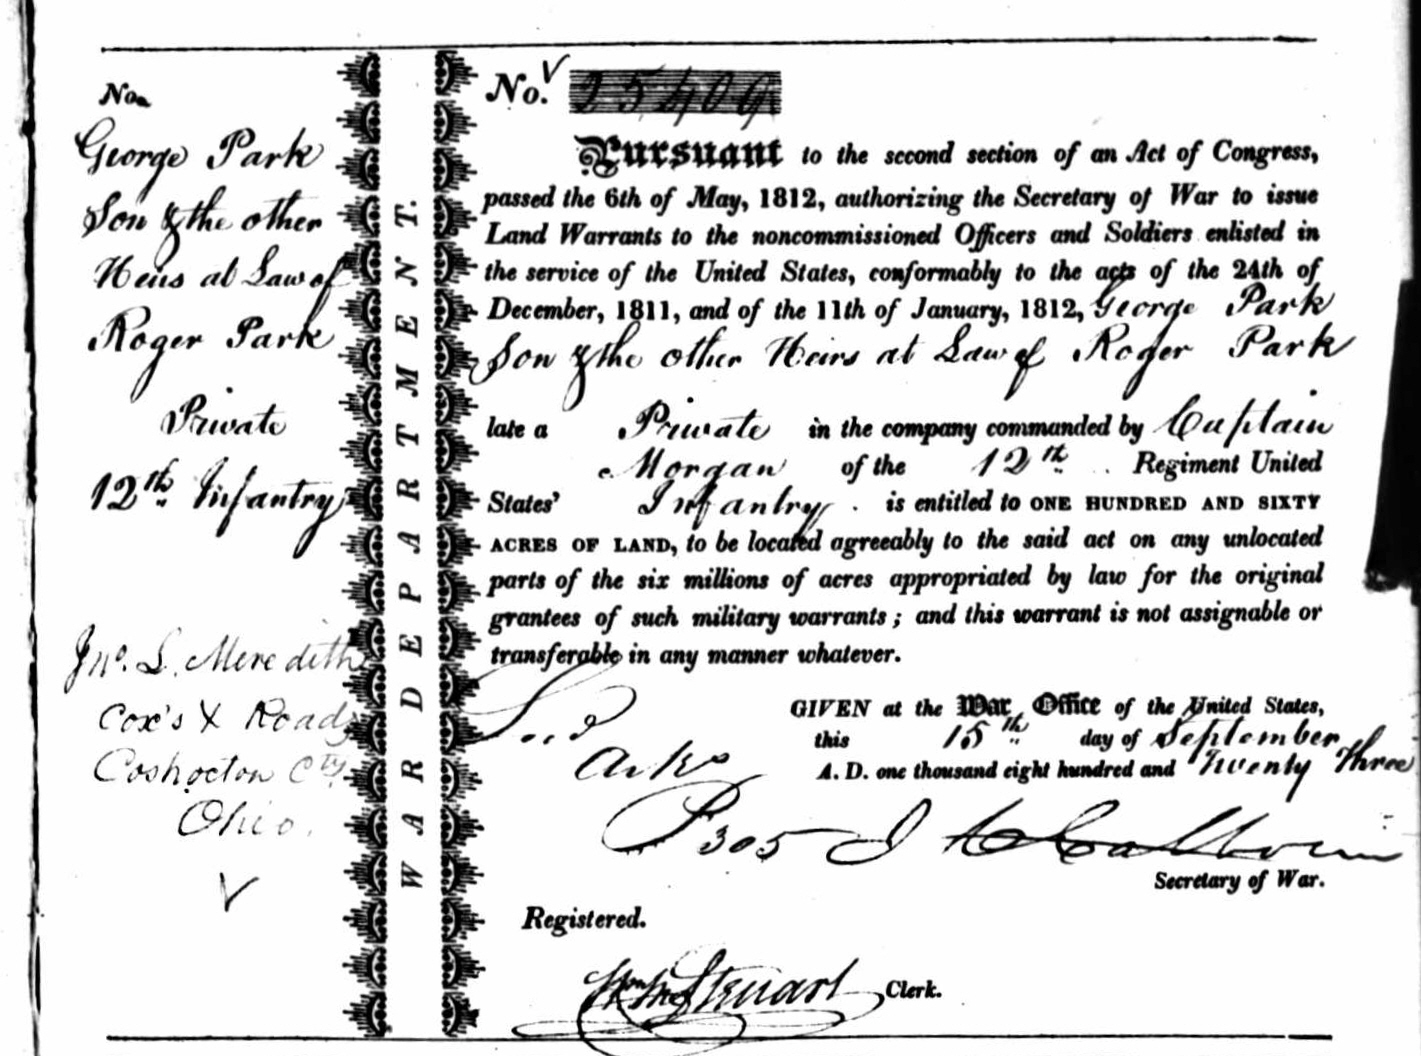 No.
George Park
Son & the other
Heirs at Law of
Roger Park
Private
12th Infantry
Jno. L. Meredith
Cox's X Roads
Coshocton Cty
Ohio.
WAR DEPARTMENT.
No. 25409
Pursuant to the second section of an Act of Congress,
passed the 6th of May, 1812, authorizing the Secretary of War to issue
Land Warrants to the noncommissioned Officers and Soldiers enlisted in
the service of the United States, conformably to the acts of the 24th of
December, 1811, and of the 11th of January, 1812, George Park
Son & the other Heirs at Law of Roger Park
late a Private in the company commanded by Captain
Morgan of the 12th Regiment United
States' Infantry is entitled to ONE HUNDRED AND SIXTY
ACRES OF LAND, to be located agreeably to the said act on any unlocated
parts of the six millions of acres appropriated by law for the original
grantees of such military warrants; and this warrant is not assignable or
transferable in any manner whatever.
GIVEN at the War Office of the United States,
this 15th day of September
A. D. one thousand eight hundred and Twenty Three
Arks
P 305
J C Calhoun
Secretary of War.
Registered.
Steuart Clerk.